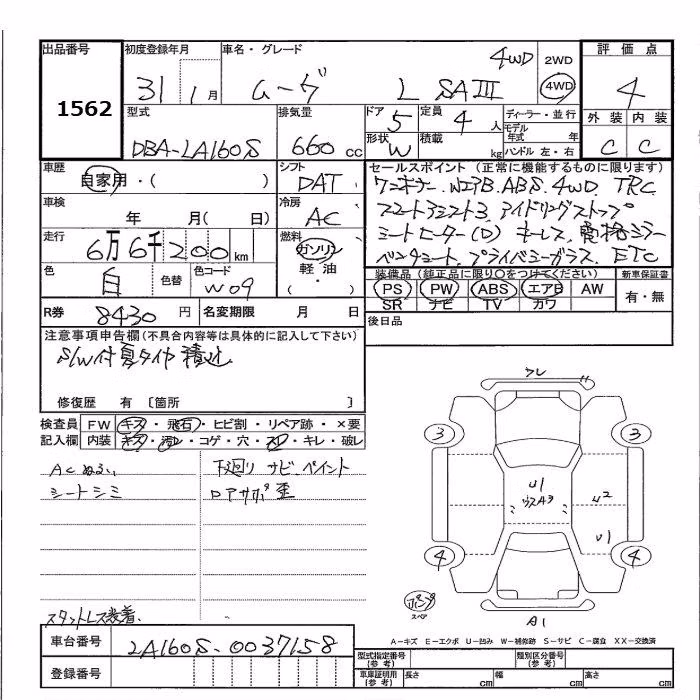 出品番号 初度登録年月 車名・グレード 評価点
1562 31 1月 ムーヴ L SAIII 4WD 2WD 4WD 4
型式 排気量 ドア 5 定員 4人 ディーラー・並行 外装 内装
DBA-LA160S 660cc 形状 W 積載 kg モデル年式 年 ハンドル 左・右 C C
車歴 自家用・( ) シフト DAT セールスポイント (正常に機能するものに限ります)
車検 年 月( 日) 冷房 AC ワンオーナー. WエアB. ABS. 4WD. TRC
スマートアシスト3. アイドリングストップ
走行 6万6千200km 燃料 ガソリン 軽油 ( ) シートヒーター(D) キーレス. 電格ミラー
ベンチシート. プライバシーガラス. ETC
色 白 色替 色コード W09 装備品 (純正品に限り○をつけてください) 新車保証書
PS PW ABS エアB AW 有・無
SR ナビ TV カワ
R券 8430円 名変期限 月 日 後日品
注意事項申告欄(不具合内容等は具体的に記入して下さい)
S/W付夏タイヤ積込
修復歴 有 〔箇所 〕
検査員 FW キズ・飛石・ヒビ割・リペア跡・×要
記入欄 内装 キズ・汚レ・コゲ・穴・スレ・キレ・破レ
ACぬるい 下廻り サビ.ペイント
シートシミ ロアサポ歪
ワレ
3 3
U1
ウスA3 U2
U1
4 4
スペア
A1
スタットレス装着.
A-キズ E-エクボ U-凹み W-補修跡 S-サビ C-腐食 XX-交換済
車台番号 LA160S-0037158 型式指定番号(参考) 類別区分番号(参考)
登録番号 車庫証明用(参考) 長さ cm 幅 cm 高さ cm